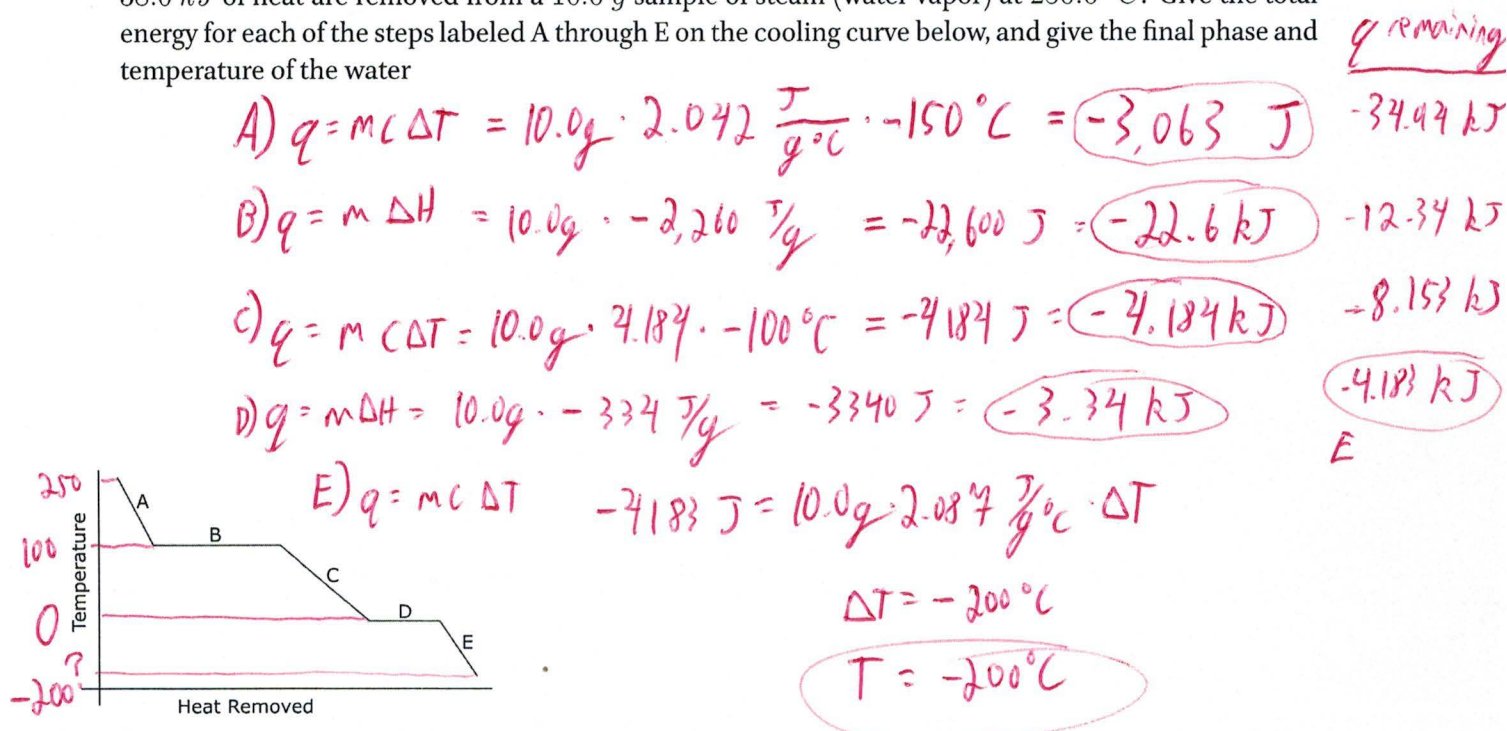 38.0 kJ of heat are removed from a 10.0 g sample of steam (water vapor) at 250.0 °C. Give the total
energy for each of the steps labeled A through E on the cooling curve below, and give the final phase and
temperature of the water
q remaining
A) q = mCΔT = 10.0g · 2.042 J/g°C · -150°C = -3,063 J
-34.94 kJ
B) q = m ΔH = 10.0g · -2,260 J/g = -22,600 J = -22.6 kJ
-12.34 kJ
C) q = m CΔT = 10.0g · 4.184 · -100°C = -4184 J = -4.184 kJ
-8.153 kJ
D) q = mΔH = 10.0g · -334 J/g = -3340 J = -3.34 kJ
-4.183 kJ
E
E) q = mC ΔT -4183 J = 10.0g · 2.087 J/g°C · ΔT
ΔT = -200°C
T = -200°C
250
100
0
?
-200
Temperature
A
B
C
D
E
Heat Removed